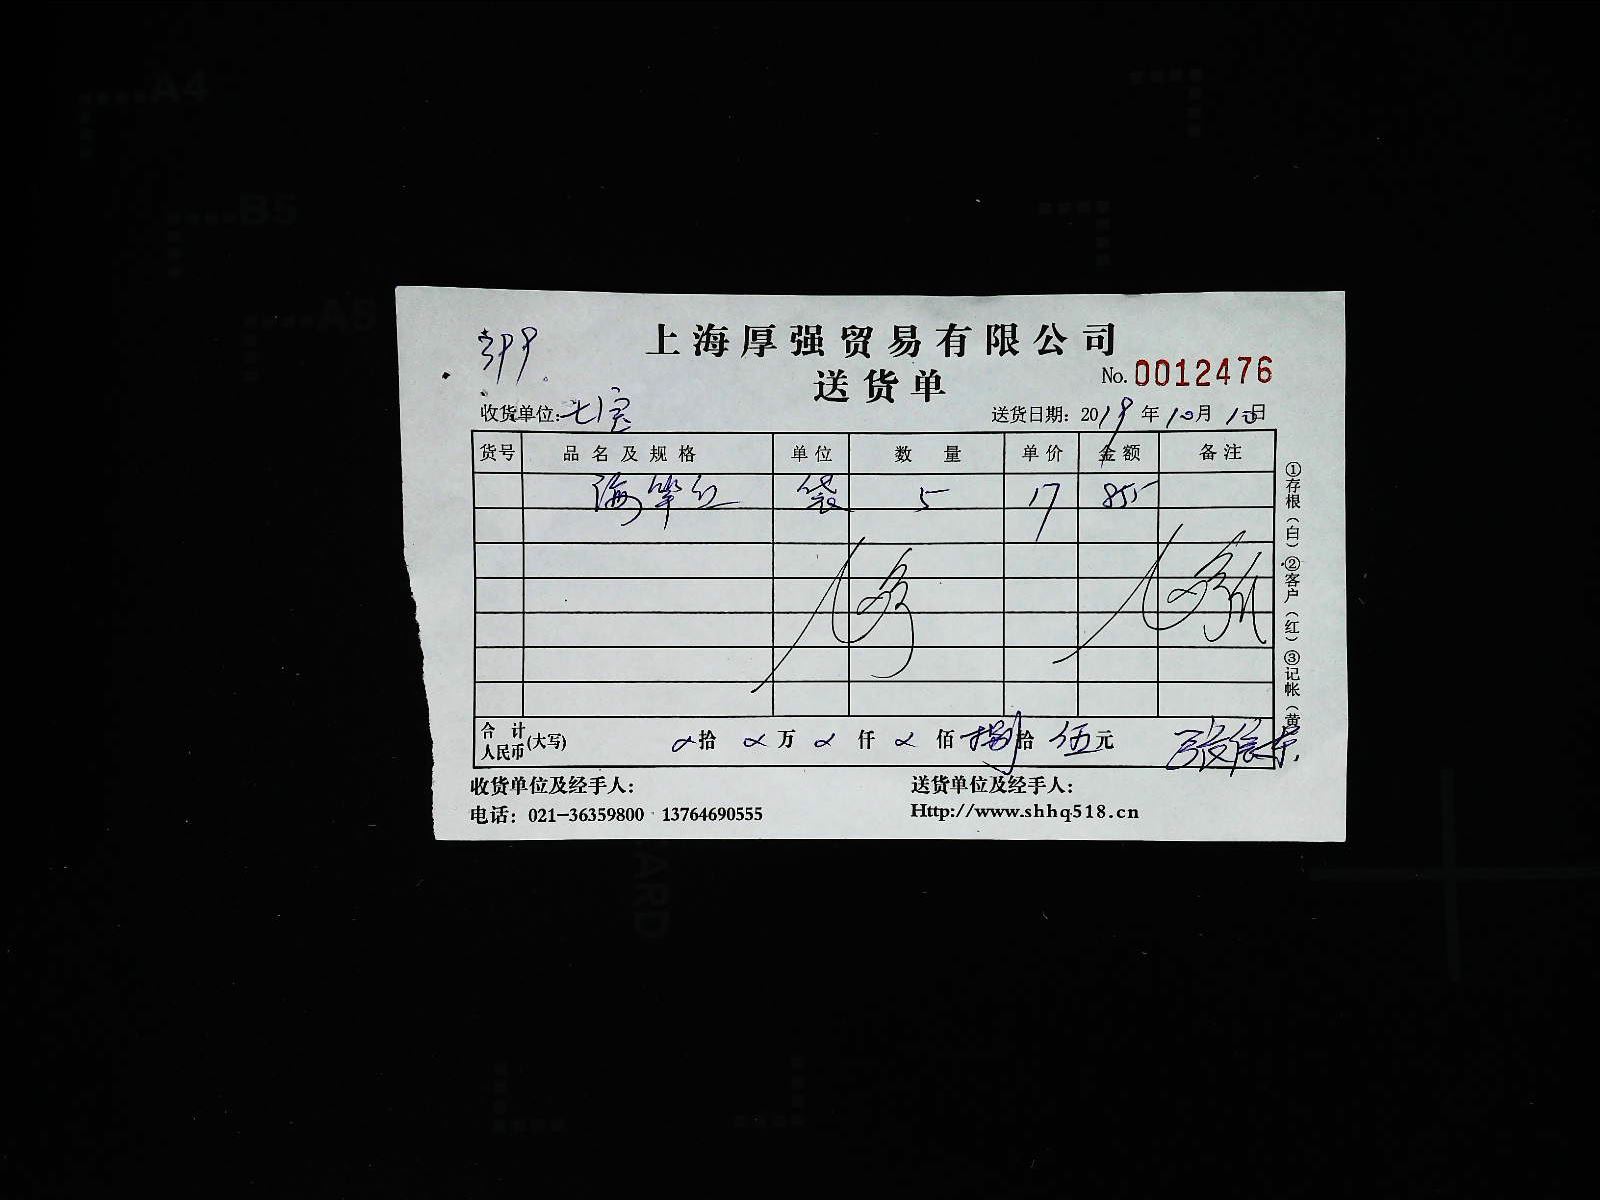 A4
B5
A5
上海厚强贸易有限公司
送货单
No. 0012476
收货单位: 七宝
送货日期: 2019年10月10日
货号 品名及规格 单位 数量 单价 金额 备注
袋 5 17 85
①存根（白）②客户（红）③记帐（黄
合计人民币(大写) 拾 万 仟 佰 捌拾 伍元
收货单位及经手人：
送货单位及经手人：
电话：021-36359800 13764690555
Http://www.shhq518.cn
CARD